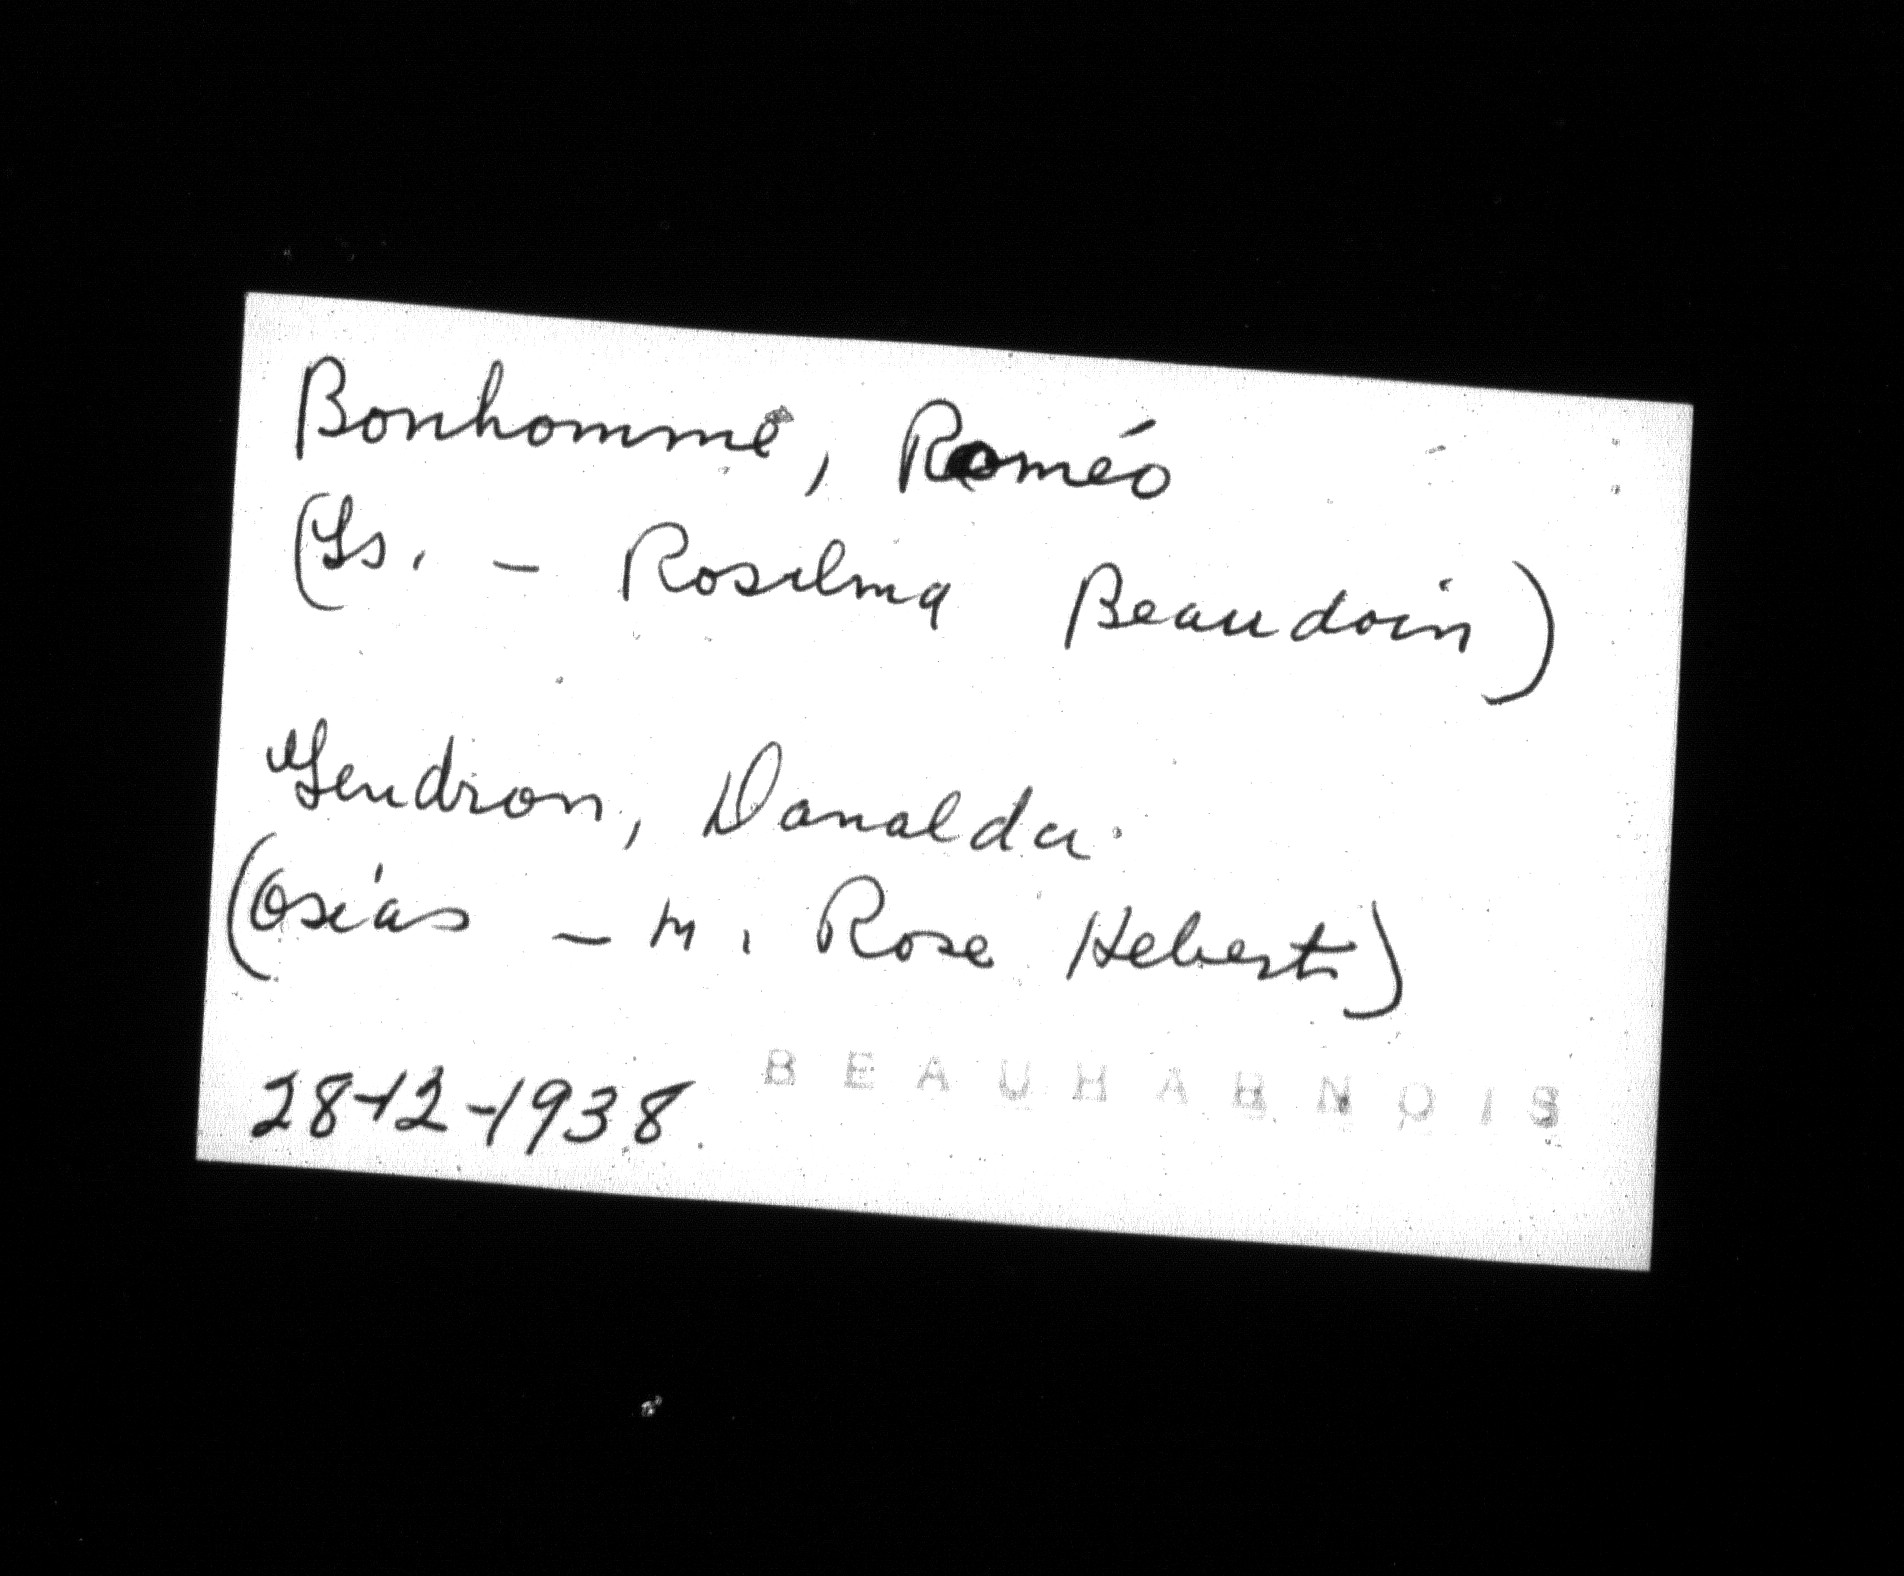 Bonhomme, Roméo
(Ls. - Rosilma Beaudoin)
Gendron, Danalda
(Osias - M. Rose Hebert)
28-12-1938. BEAUHARNOIS